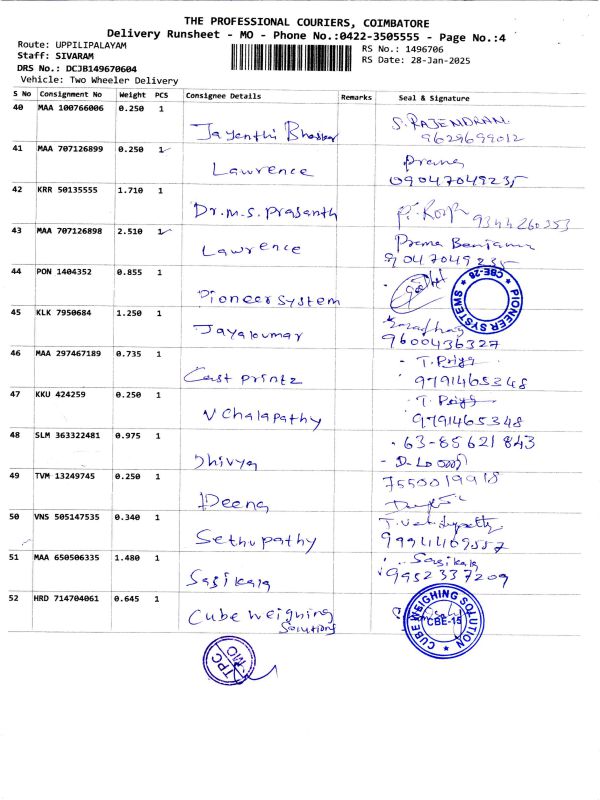 THE PROFESSIONAL COURIERS, COIMBATORE
Delivery Runsheet - MO - Phone No.:0422-3505555 - Page No.:4
Route: UPPILIPALAYAM RS No.: 1496706
Staff: SIVARAM RS Date: 28-Jan-2025
DRS No.: DCJB149670604
Vehicle: Two Wheeler Delivery
S No Consignment No Weight PCS Consignee Details Remarks Seal & Signature
40 MAA 100766006 0.250 1
S. RAJENDRAN
Jayenthi Bhaskar 9629699012
41 MAA 707126899 0.250 1
Prema
Lawrence 09047049235
42 KRR 50135555 1.710 1
Dr.M.S. Prasanth 9344260353
43 MAA 707126898 2.510 1
Prema Benjamin
Lawrence 9047049235
44 PON 1404352 0.855 1
Pioneer System
PIONEER SYSTEMS CBE-28
45 KLK 7950684 1.250 1
Jayakumar 9600436327
46 MAA 297467189 0.735 1
T. Priya
Cast printz 9791465348
47 KKU 424259 0.250 1
T. Priya
V Chalapathy 9791465348
48 SLM 363322481 0.975 1
63-85621843
Dhivya
49 TVM 13249745 0.250 1
7550019918
Deena
50 VNS 505147535 0.340 1
Sethupathy 9994469557
51 MAA 650506335 1.480 1
Sasikala
Sasikala 9952337209
52 HRD 714704061 0.645 1
Cube Weighing
Solutions
CUBE WEIGHING SOLUTION CBE-15
TPC MO